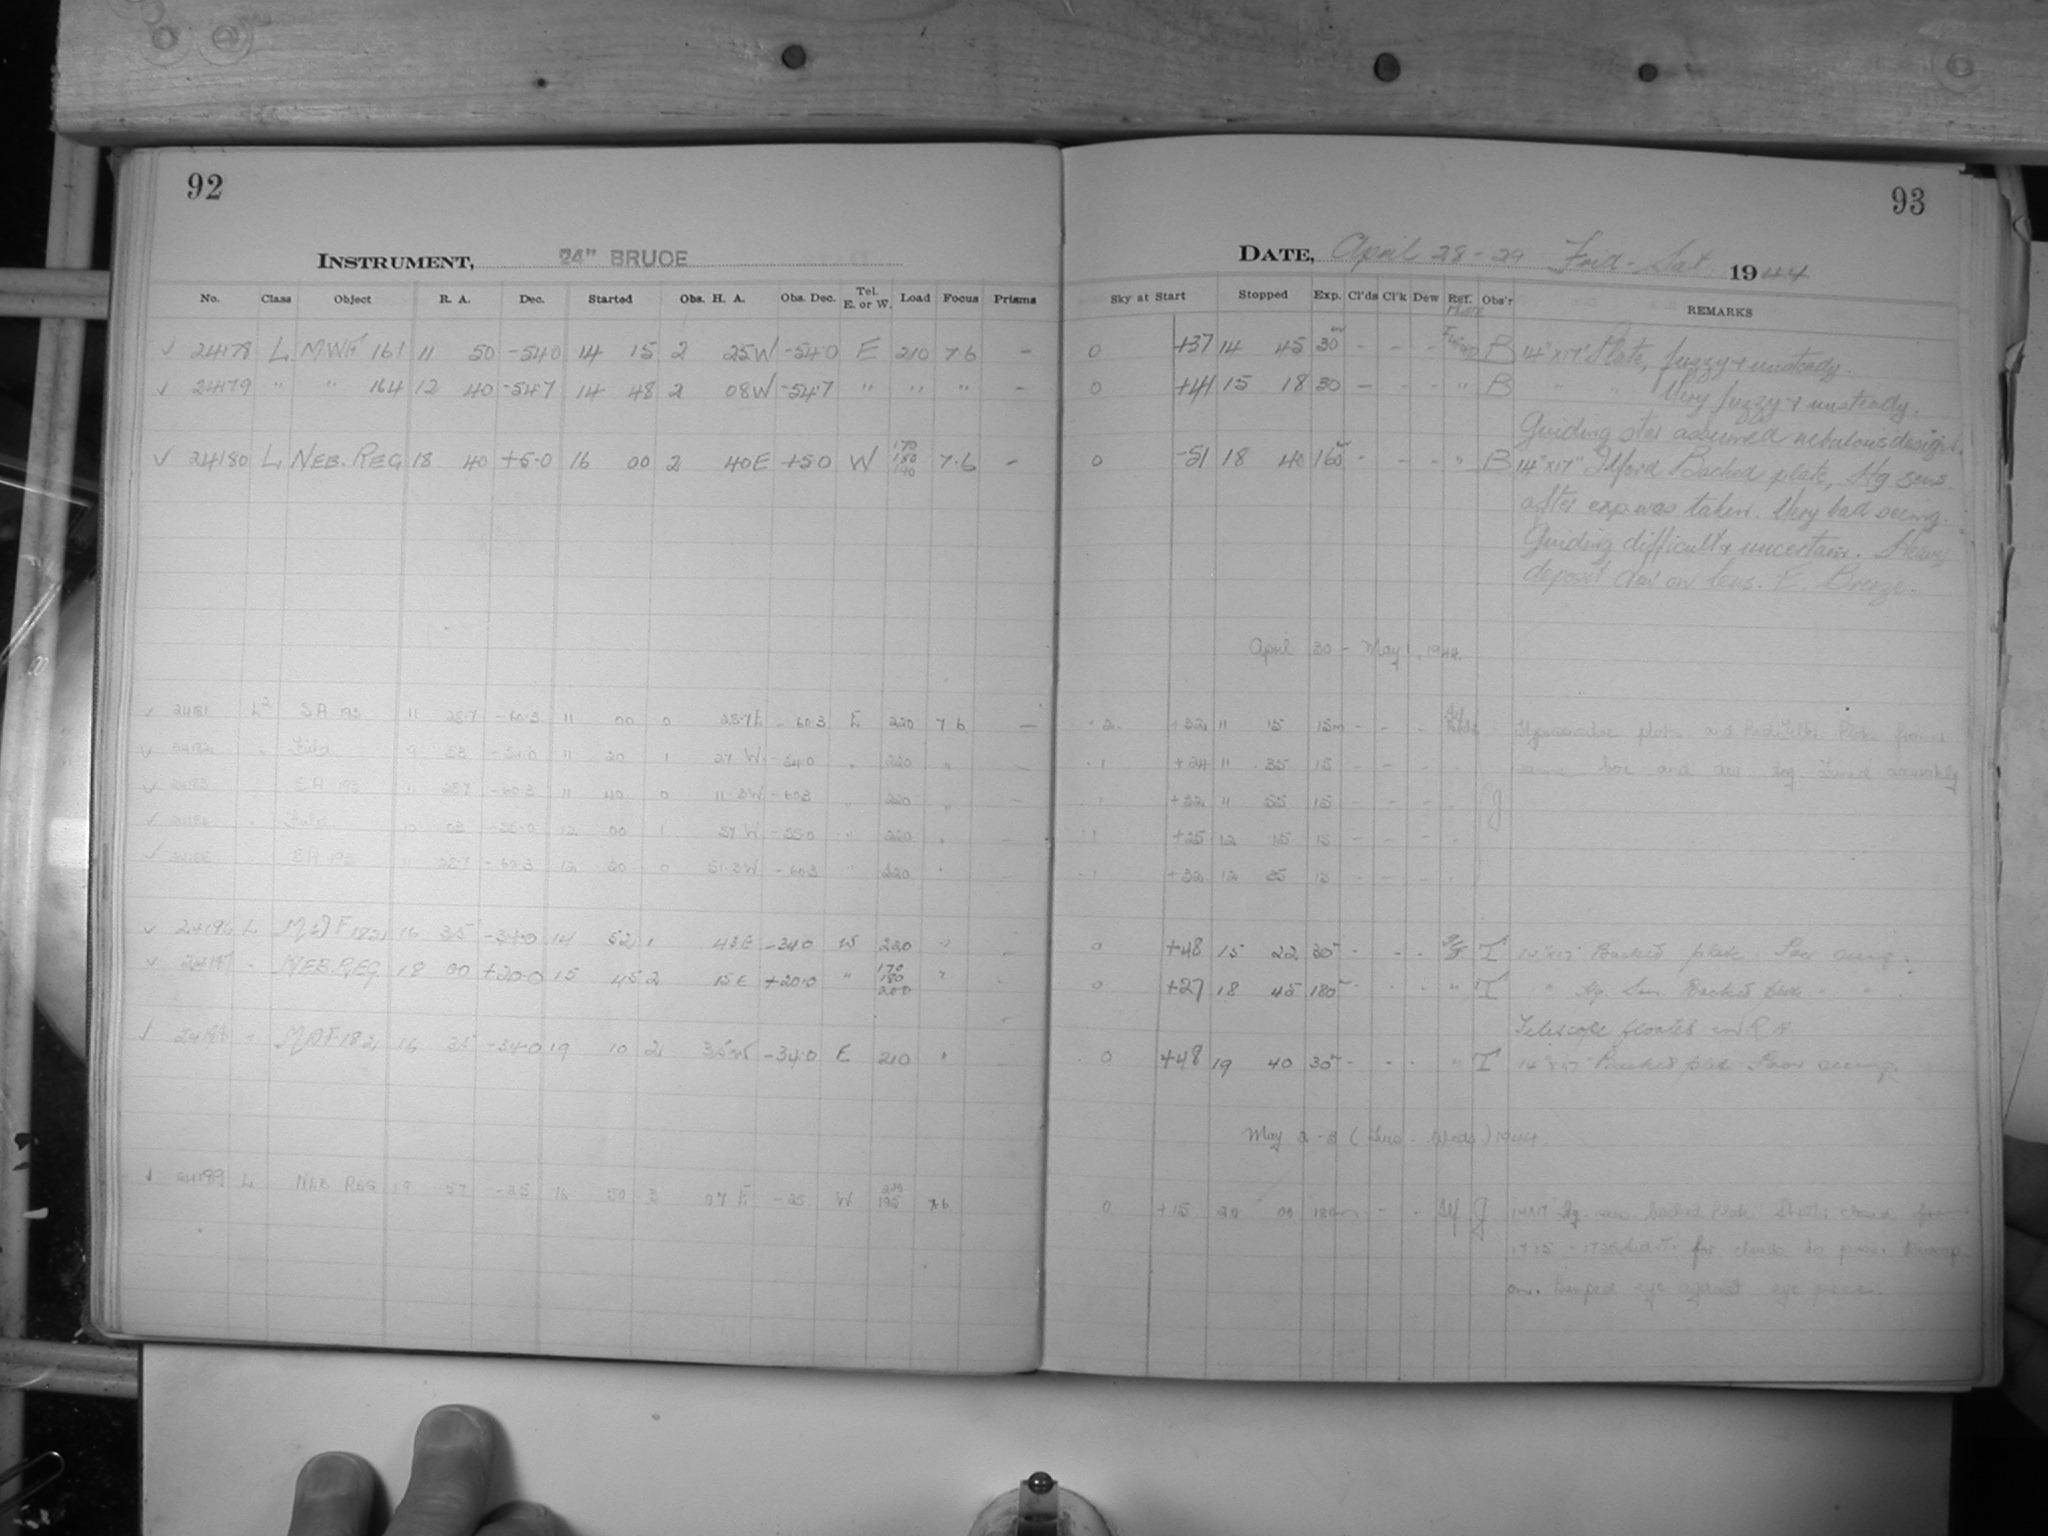 92
93
INSTRUMENT, 24" BRUCE
DATE, April 28-29 Frid-Sat. 1944
No. Class Object R. A. Dec. Started Obs. H. A. Obs. Dec. Tel. E. or W. Load Focus Prisms
Sky at Start Stopped Exp. Cl'ds Cl'k Dew Ref. Obs'r REMARKS
✓ 24178 L MWF 161 11 50 -54.0 14 15 2 25W -54.0 E 210 7.6 - 0 +37 14 45 30m - - - B 14"x17" Plate, fuzzy & unsteady.
✓ 24179 " " 164 12 40 -54.7 14 48 2 08W -54.7 " " " - 0 +41 15 18 30 - - - " B " " Very fuzzy & unsteady.
Guiding star assumed nebulous design.
✓ 24180 L NEB. REG 18 40 +5.0 16 00 2 40E +5.0 W 170 7.6 - 0 -51 18 40 160m - - - " B 14"x17" Ilford Backed plate, Hg sens.
after exp. was taken. Very bad seeing.
Guiding difficult & uncertain. Heavy
deposit dew on lens. E. Breeze.
April 30 - May 1, 1944.
✓ 24181 L2 SA 193 11 28.7 -60.3 11 00 0 28.7E -60.3 E 220 7.6 - 2 +32 11 15 15m - - -
✓ Field 9 53 -54.0 11 20 1 27 W -54.0 " 220 " - 1 +24 11 35 15 - - - box and dev. tog.
✓ SA 193 11 28.7 -60.3 11 40 0 11.3W -60.3 " 220 " - 1 +32 11 55 15 - - - J
✓ Field 10 03 -55.0 12 00 1 57 W -55.0 " 220 " - 1 +25 12 15 15 - - -
✓ SA 193 11 28.7 -60.3 12 20 0 51.3W -60.3 " 220 " - 1 +32 12 35 15 - - -
✓ 24196 L MWF 182 16 35 -34.0 14 52 1 43E -34.0 W 220 " 0 +48 15 22 30m - - - T 14"x17" Backed plate. Poor seeing.
✓ 24197 NEB. REG 18 00 +20.0 15 45 2 15E +20.0 " 170 180 200 " 0 +27 18 45 180m - - - " T " Hg. Sen. Backed plate " "
Telescope floated in R.A.
✓ 24198 " MWF 182 16 35 -34.0 19 10 2 35W -34.0 E 210 " 0 +48 19 40 30m - - - " T 14"x17" Backed plate Poor seeing.
May 2-3 (Tues - Weds) 1944.
✓ 24199 L NEB REG 19 57 -25 16 50 3 07 E -25 W 195 7.6 0 +15 20 00 180m - - J 14x17 Hg. sens. backed Plate
for clouds to pass.
on. Bumped eye against eye piece.